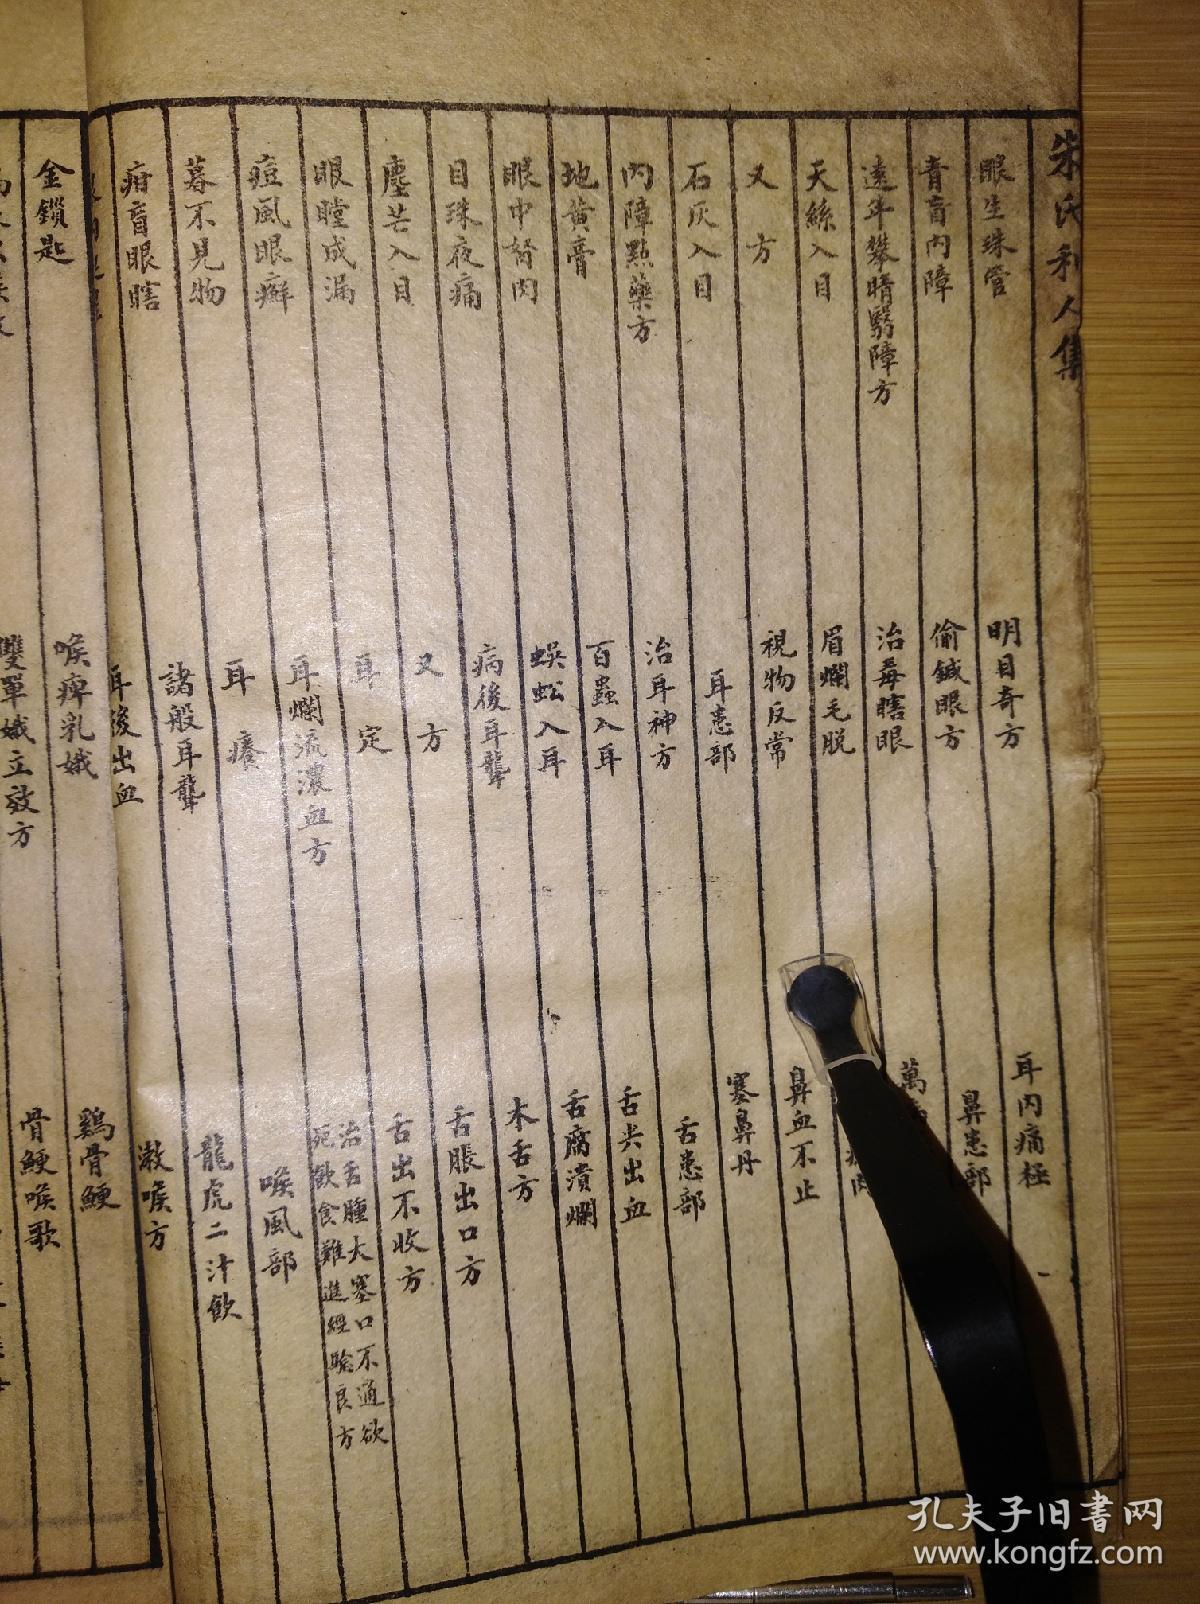 朱氏利人集
眼生珠管
明目奇方
耳內痛極
青盲內障
偷鍼眼方
鼻患部
遠年攀睛翳障方
治毒瞎眼
萬
天絲入目
眉爛毛脱
肉
又方
視物反常
鼻血不止
石灰入目
耳患部
塞鼻丹
內障點藥方
治耳神方
舌患部
地黄膏
百蟲入耳
舌尖出血
眼中努肉
蜈蚣入耳
舌腐潰爛
目珠夜痛
病後耳聾
木舌方
塵芒入目
又方
舌脹出口方
眼瞠成漏
耳定
舌出不收方
痘風眼癬
耳爛流濃血方
治舌腫大塞口不通欲
死飲食難進經驗良方
暮不見物
耳癢
喉風部
疳盲眼瞎
諸般耳聾
龍虎二汁飲
耳後出血
漱喉方
金鎖匙
喉痺乳娥
鷄骨鯁
雙單娥立效方
骨鯁喉歌
孔夫子旧书网
www.kongfz.com